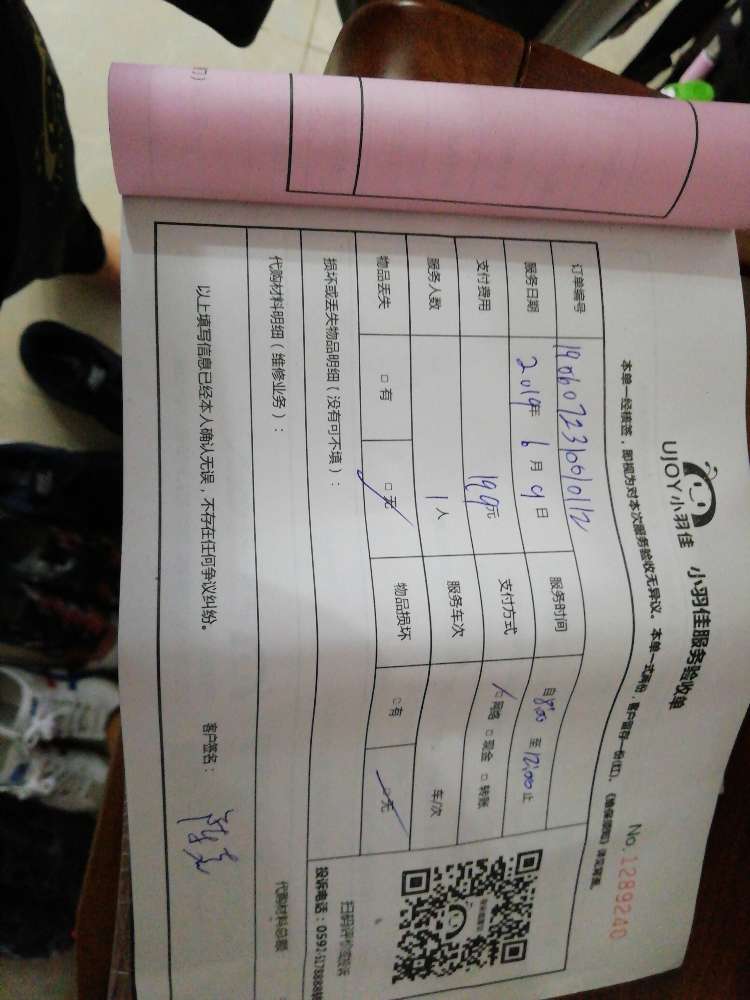 UJOY小羽佳 小羽佳服务验收单
No.1289240
本单一经核签，即视为对本次服务验收无异议。本单一式两份，客户留存一份(红)。
订单编号 190607231060112 服务时间 自8:00至12:00止
服务日期 2019年6月9日 支付方式 □网络 □现金 □转账
支付费用 199元 服务车次 车/次
服务人数 1人
物品丢失 □有 □无 物品损坏 □有 □无
损坏或丢失物品明细（没有可不填）：
代购材料明细（维修业务）： 代购材料总额
扫码评价或投诉
投诉电话：0592-
以上填写信息已经本人确认无误，不存在任何争议纠纷。 客户签名：